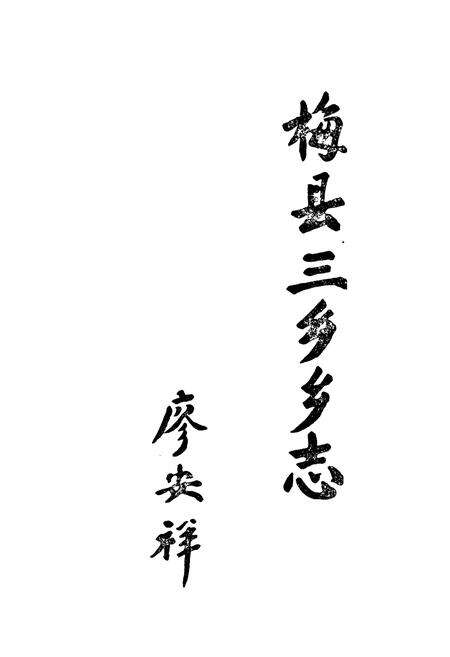 梅县三乡乡志
廖安祥